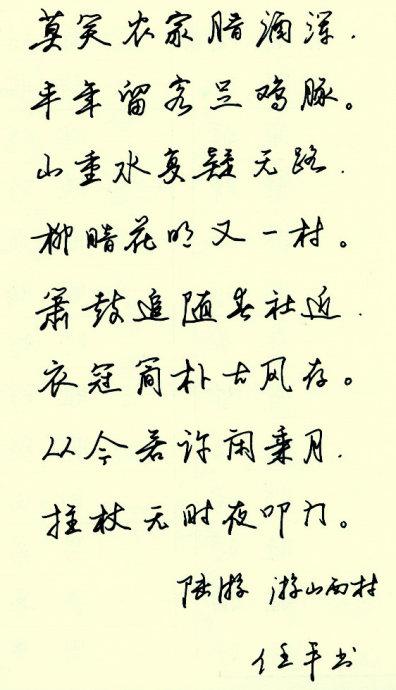 莫笑农家腊酒浑，
丰年留客足鸡豚。
山重水复疑无路，
柳暗花明又一村。
箫鼓追随春社近，
衣冠简朴古风存。
从今若许闲乘月，
拄杖无时夜叩门。
陆游 游山西村
任平书